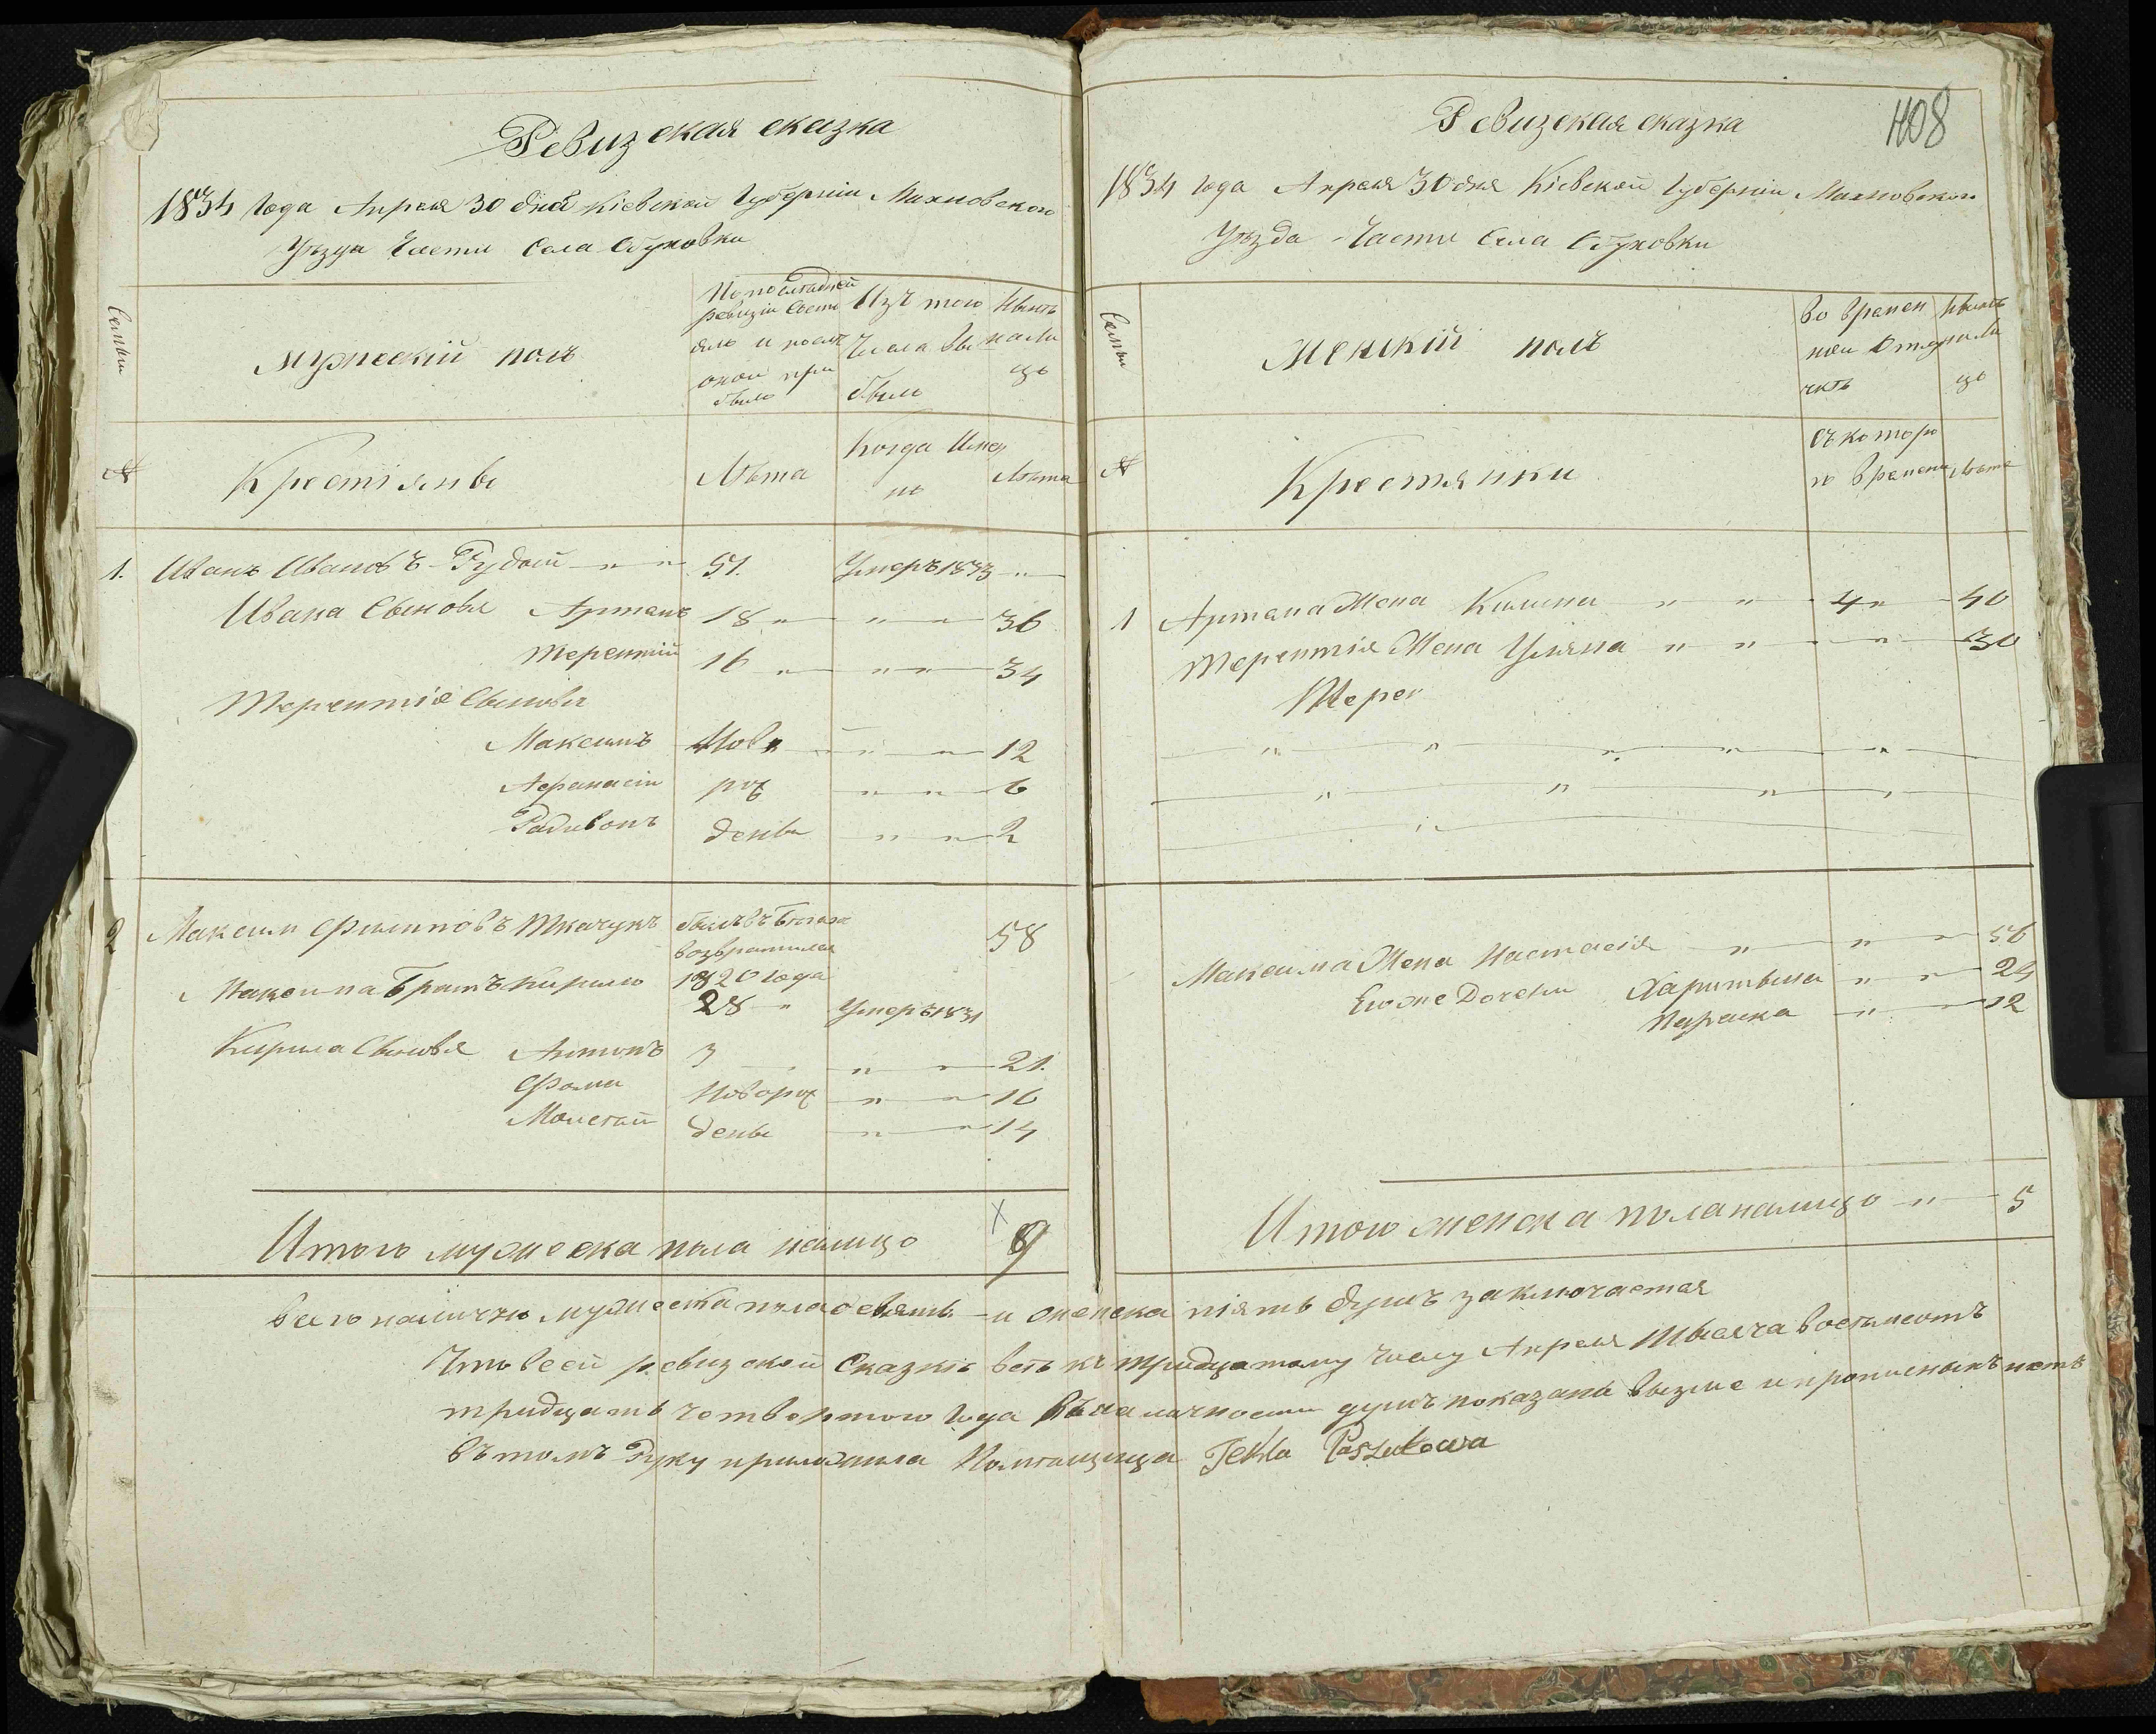 Ревизская сказка
1834 года Апреля 30 дня Кіевской Губерніи Махновского
Уѣзда Части Села Обуховки
Семьи
мужеский полъ
По последней
ревизіи состо
яло и после
оной при
было
Изъ того
Числа вы
было
Нынѣ
нали
цо
№
Крестіяне
Лѣта
Когда Имен
но
Лѣта
1. Иванъ Ивановъ Рудый 51. Умеръ 1833
Ивана Сыновя Артемъ 18 36
Терентій 16 34
Терентія Сыновя
Максимъ Ново 12
Афанасій рож 6
Радивонъ дены 2
2 Максим Филиповъ Ткачукъ былъ въ Бегахъ 58
возвратился
Максима Братъ Кирило 1820 года
28 Умеръ 1831
Кирила Сыновя Антонъ 3 21.
Фома Новорож 16
Моисѣй дены 14
Итого мужеска пола налицо 9
Ревизская сказка
408
1834 года Апреля 30 дня Кіевской Губерніи Махновского
Уѣзда Части Села Обуховки
Семьи
Женский полъ
Во времен
ной отлу
чкѣ
Нынѣ
нали
цо
№
Крестянки
Съ которо
го времени
Лѣта
1 Артема Жена Килина 40
Терентія Жена Уляна 30
Терен
Максима Жена Настасія 56
Егоже Дочери Харитына 24
Параска 12
Итого женска пола налицо 5
Всего налично мужеска пола девять и женска піять душъ заключается
Что в сей ревизской Сказкѣ всѣ къ тридцатому числу Апреля тысяча восемсотъ
тридцать четвертого года въ наличности душъ показаны выше и прописныхъ нетъ
въ томъ Руку приложила Помещица Tekla Paszukowa